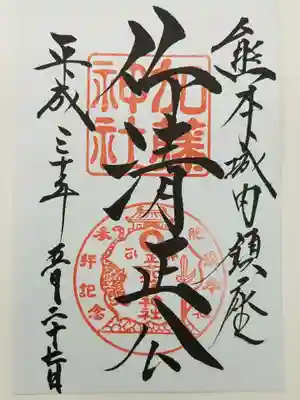 熊本城内鎮座
仰清正公
加藤
神社
平成三十年五月二十七日